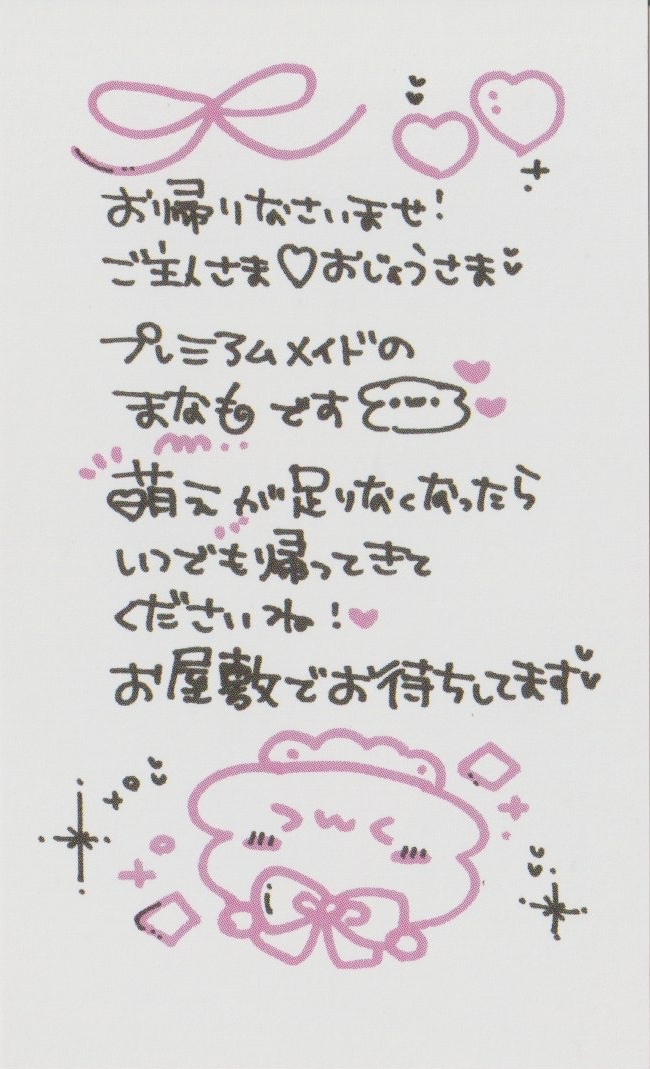 お帰りなさいませ!
ご主人さま♡おじょうさま
プレミアムメイドの
まなもです
萌えが足りなくなったら
いつでも帰ってきて
くださいね!
お屋敷でお待ちしてます